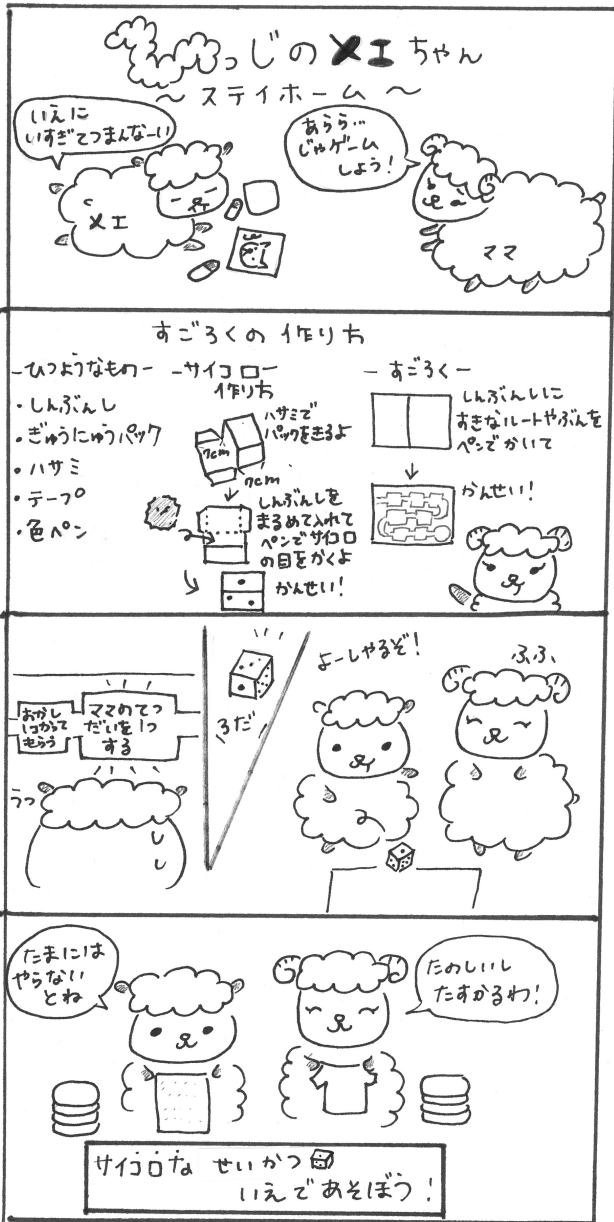 ひつじのメエちゃん
～ステイホーム～
いえに
いすぎてつまんなーい
あらら…
じゃゲーム
しよう！
メエ
ママ
すごろくの作り方
-ひつようなもの-
・しんぶんし
・ぎゅうにゅうパック
・ハサミ
・テープ
・色ペン
-サイコロ-
作り方
ハサミで
パックをきるよ
7cm
7cm
しんぶんしを
まるめて入れて
ペンでサイコロ
の目をかくよ
かんせい！
-すごろく-
しんぶんしに
すきなルートやぶんを
ペンでかいて
かんせい！
よーしやるぞ！
ふふ、
3だ
おかし
1コかって
もらう
ママのてつ
だいを1つ
する
うっ
たまには
やらない
とね
たのしいし
たすかるわ！
サイコロな せいかつ
いえであそぼう！